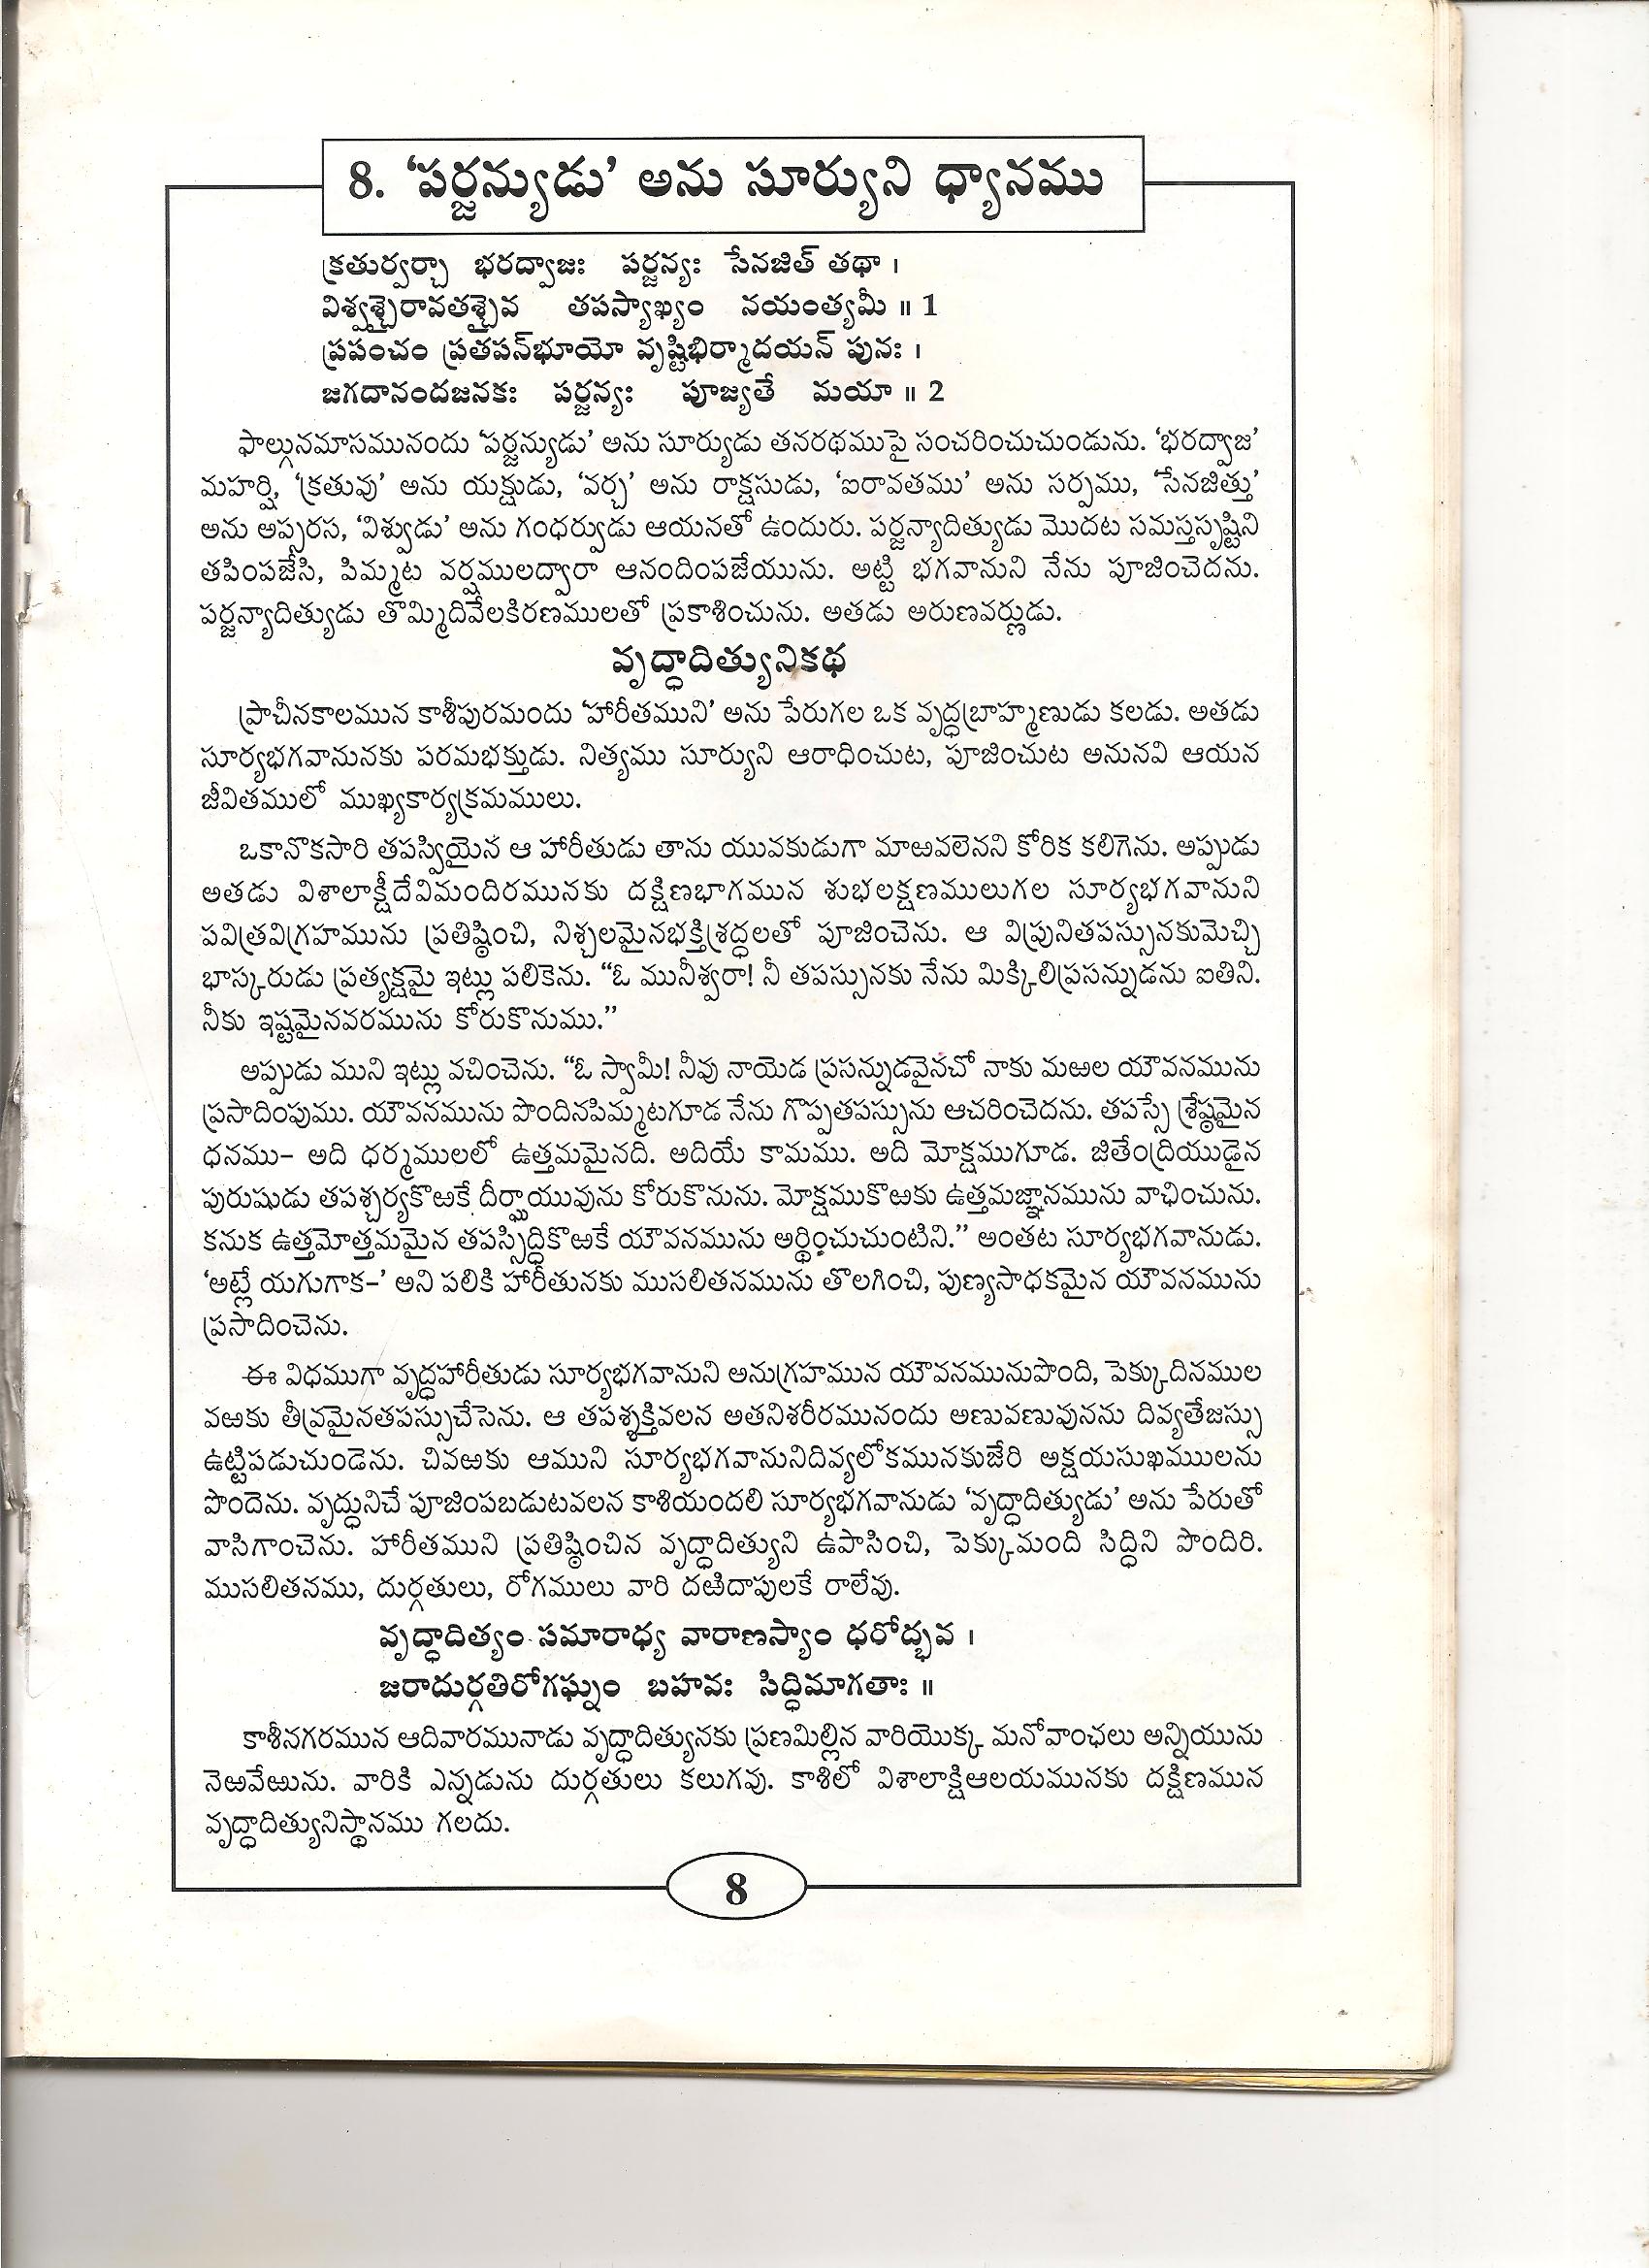 8. ‘పర్జన్యుడు’ అను సూర్యుని ధ్యానము
క్రతుర్వర్చా భరద్వాజః పర్జన్యః సేనజిత్ తథా ।
విశ్వశ్చైరావతశ్చైవ తపస్యాఖ్యం నయంత్యమీ ॥ 1
ప్రపంచం ప్రతపన్‌భూయో వృష్టిభిర్మాదయన్ పునః ।
జగదానందజనకః పర్జన్యః పూజ్యతే మయా ॥ 2
ఫాల్గునమాసమునందు ‘పర్జన్యుడు’ అను సూర్యుడు తనరథముపై సంచరించుచుండును. ‘భరద్వాజ’
మహర్షి, ‘క్రతువు’ అను యక్షుడు, ‘వర్చ’ అను రాక్షసుడు, ‘ఐరావతము’ అను సర్పము, ‘సేనజిత్తు’
అను అప్సరస, ‘విశ్వుడు’ అను గంధర్వుడు ఆయనతో ఉందురు. పర్జన్యాదిత్యుడు మొదట సమస్తసృష్టిని
తపింపజేసి, పిమ్మట వర్షములద్వారా ఆనందింపజేయును. అట్టి భగవానుని నేను పూజించెదను.
పర్జన్యాదిత్యుడు తొమ్మిదివేలకిరణములతో ప్రకాశించును. అతడు అరుణవర్ణుడు.
వృద్ధాదిత్యునికథ
ప్రాచీనకాలమున కాశీపురమందు ‘హారీతముని’ అను పేరుగల ఒక వృద్ధబ్రాహ్మణుడు కలడు. అతడు
సూర్యభగవానునకు పరమభక్తుడు. నిత్యము సూర్యుని ఆరాధించుట, పూజించుట అనునవి ఆయన
జీవితములో ముఖ్యకార్యక్రమములు.
ఒకానొకసారి తపస్వియైన ఆ హారీతుడు తాను యువకుడుగా మాఱవలెనని కోరిక కలిగెను. అప్పుడు
అతడు విశాలాక్షీదేవిమందిరమునకు దక్షిణభాగమున శుభలక్షణములుగల సూర్యభగవానుని
పవిత్రవిగ్రహమును ప్రతిష్ఠించి, నిశ్చలమైనభక్తిశ్రద్ధలతో పూజించెను. ఆ విప్రునితపస్సునకుమెచ్చి
భాస్కరుడు ప్రత్యక్షమై ఇట్లు పలికెను. “ఓ మునీశ్వరా! నీ తపస్సునకు నేను మిక్కిలిప్రసన్నుడను ఐతిని.
నీకు ఇష్టమైనవరమును కోరుకొనుము.”
అప్పుడు ముని ఇట్లు వచించెను. “ఓ స్వామీ! నీవు నాయెడ ప్రసన్నుడవైనచో నాకు మఱల యౌవనమును
ప్రసాదింపుము. యౌవనమును పొందినపిమ్మటగూడ నేను గొప్పతపస్సును ఆచరించెదను. తపస్సే శ్రేష్ఠమైన
ధనము– అది ధర్మములలో ఉత్తమమైనది. అదియే కామము. అది మోక్షముగూడ. జితేంద్రియుడైన
పురుషుడు తపశ్చర్యకొఱకే దీర్ఘాయువును కోరుకొనును. మోక్షముకొఱకు ఉత్తమజ్ఞానమును వాఛించును.
కనుక ఉత్తమోత్తమమైన తపస్సిద్ధికొఱకే యౌవనమును అర్థించుచుంటిని.” అంతట సూర్యభగవానుడు.
‘అట్లే యగుగాక–’ అని పలికి హారీతునకు ముసలితనమును తొలగించి, పుణ్యసాధకమైన యౌవనమును
ప్రసాదించెను.
ఈ విధముగా వృద్ధహారీతుడు సూర్యభగవానుని అనుగ్రహమున యౌవనమునుపొంది, పెక్కుదినముల
వఱకు తీవ్రమైనతపస్సుచేసెను. ఆ తపశ్శక్తివలన అతనిశరీరమునందు అణువణువునను దివ్యతేజస్సు
ఉట్టిపడుచుండెను. చివఱకు ఆముని సూర్యభగవానునిదివ్యలోకమునకుజేరి అక్షయసుఖములను
పొందెను. వృద్ధునిచే పూజింపబడుటవలన కాశియందలి సూర్యభగవానుడు ‘వృద్ధాదిత్యుడు’ అను పేరుతో
వాసిగాంచెను. హారీతముని ప్రతిష్ఠించిన వృద్ధాదిత్యుని ఉపాసించి, పెక్కుమంది సిద్ధిని పొందిరి.
ముసలితనము, దుర్గతులు, రోగములు వారి దఱిదాపులకే రాలేవు.
వృద్ధాదిత్యం సమారాధ్య వారాణస్యాం ధరోద్భవ ।
జరాదుర్గతిరోగఘ్నం బహవః సిద్ధిమాగతాః ॥
కాశీనగరమున ఆదివారమునాడు వృద్ధాదిత్యునకు ప్రణమిల్లిన వారియొక్క మనోవాంఛలు అన్నియును
నెఱవేఱును. వారికి ఎన్నడును దుర్గతులు కలుగవు. కాశిలో విశాలాక్షిఆలయమునకు దక్షిణమున
వృద్ధాదిత్యునిస్థానము గలదు.
8